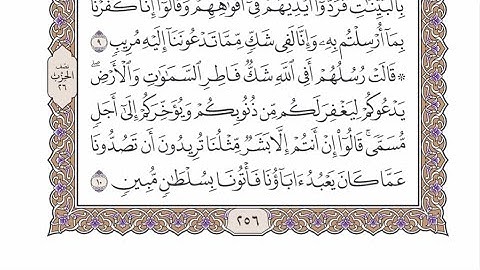 بِٱلۡبَيِّنَٰتِ فَرَدُّوٓاْ أَيۡدِيَهُمۡ فِيٓ أَفۡوَٰهِهِمۡ وَقَالُوٓاْ إِنَّا كَفَرۡنَا
بِمَآ أُرۡسِلۡتُم بِهِۦ وَإِنَّا لَفِي شَكّٖ مِّمَّا تَدۡعُونَنَآ إِلَيۡهِ مُرِيبٖ ٩
۞ قَالَتۡ رُسُلُهُمۡ أَفِي ٱللَّهِ شَكّٞ فَاطِرِ ٱلسَّمَٰوَٰتِ وَٱلۡأَرۡضِۖ
يَدۡعُوكُمۡ لِيَغۡفِرَ لَكُم مِّن ذُنُوبِكُمۡ وَيُؤَخِّرَكُمۡ إِلَىٰٓ أَجَلٖ
مُّسَمّٗىۚ قَالُوٓاْ إِنۡ أَنتُمۡ إِلَّا بَشَرٞ مِّثۡلُنَا تُرِيدُونَ أَن تَصُدُّونَا
عَمَّا كَانَ يَعۡبُدُ ءَابَآؤُنَا فَأۡتُونَا بِسُلۡطَٰنٖ مُّبِينٖ ١٠
نصف
الحزب
٢٦
٢٥٦